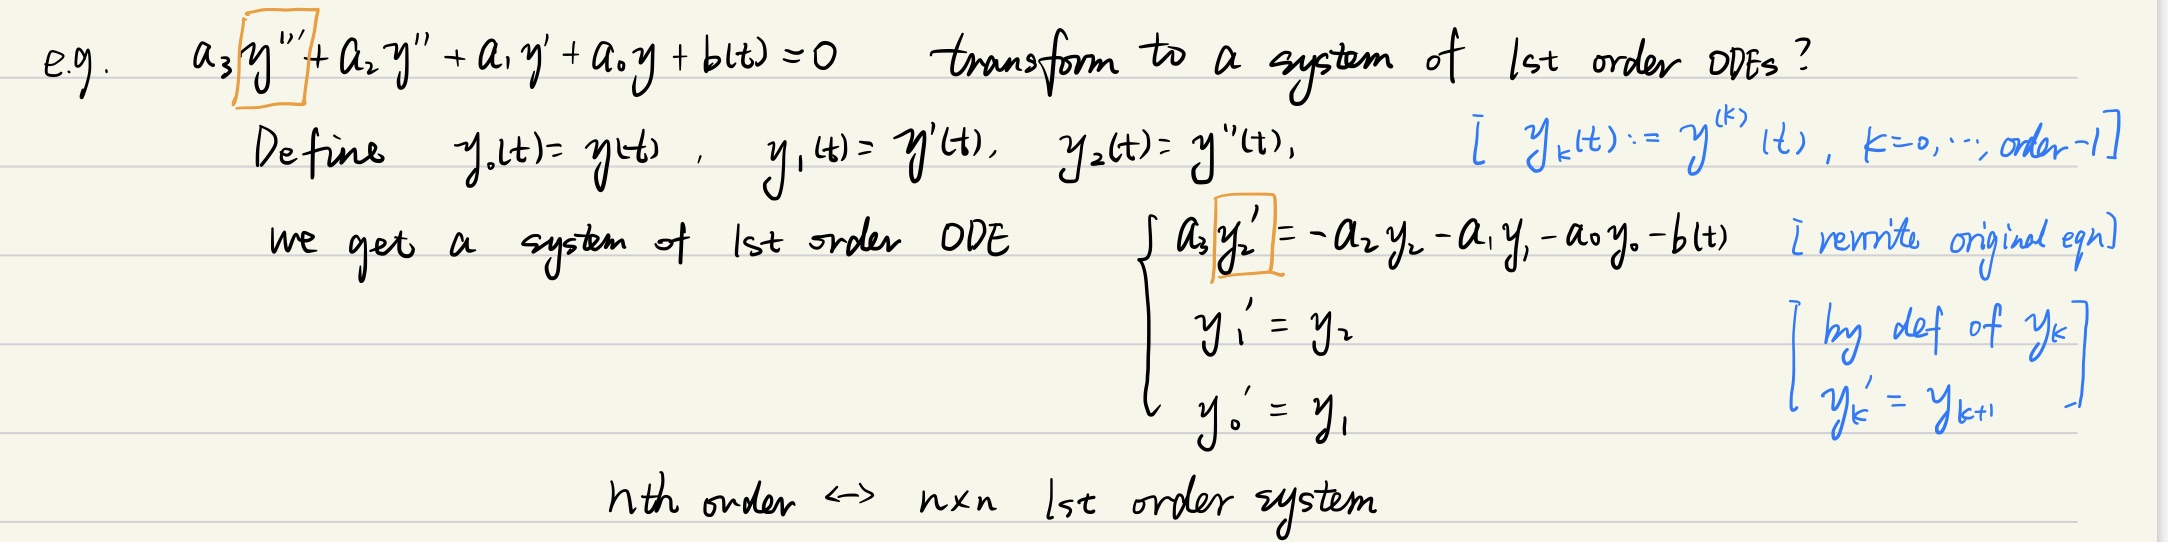 e.g. a₃y''' + a₂y'' + a₁y' + a₀y + b(t) = 0 transform to a system of 1st order ODEs?
Define y₀(t) = y(t), y₁(t) = y'(t), y₂(t) = y''(t), [ yₖ(t) := y⁽ᵏ⁾(t), k=0,⋯, order-1]
we get a system of 1st order ODE { a₃y₂' = -a₂y₂ - a₁y₁ - a₀y₀ - b(t) [rewrite original eqn]
y₁' = y₂ [by def of yₖ
y₀' = y₁ yₖ' = yₖ₊₁]
nth order <-> n×n 1st order system